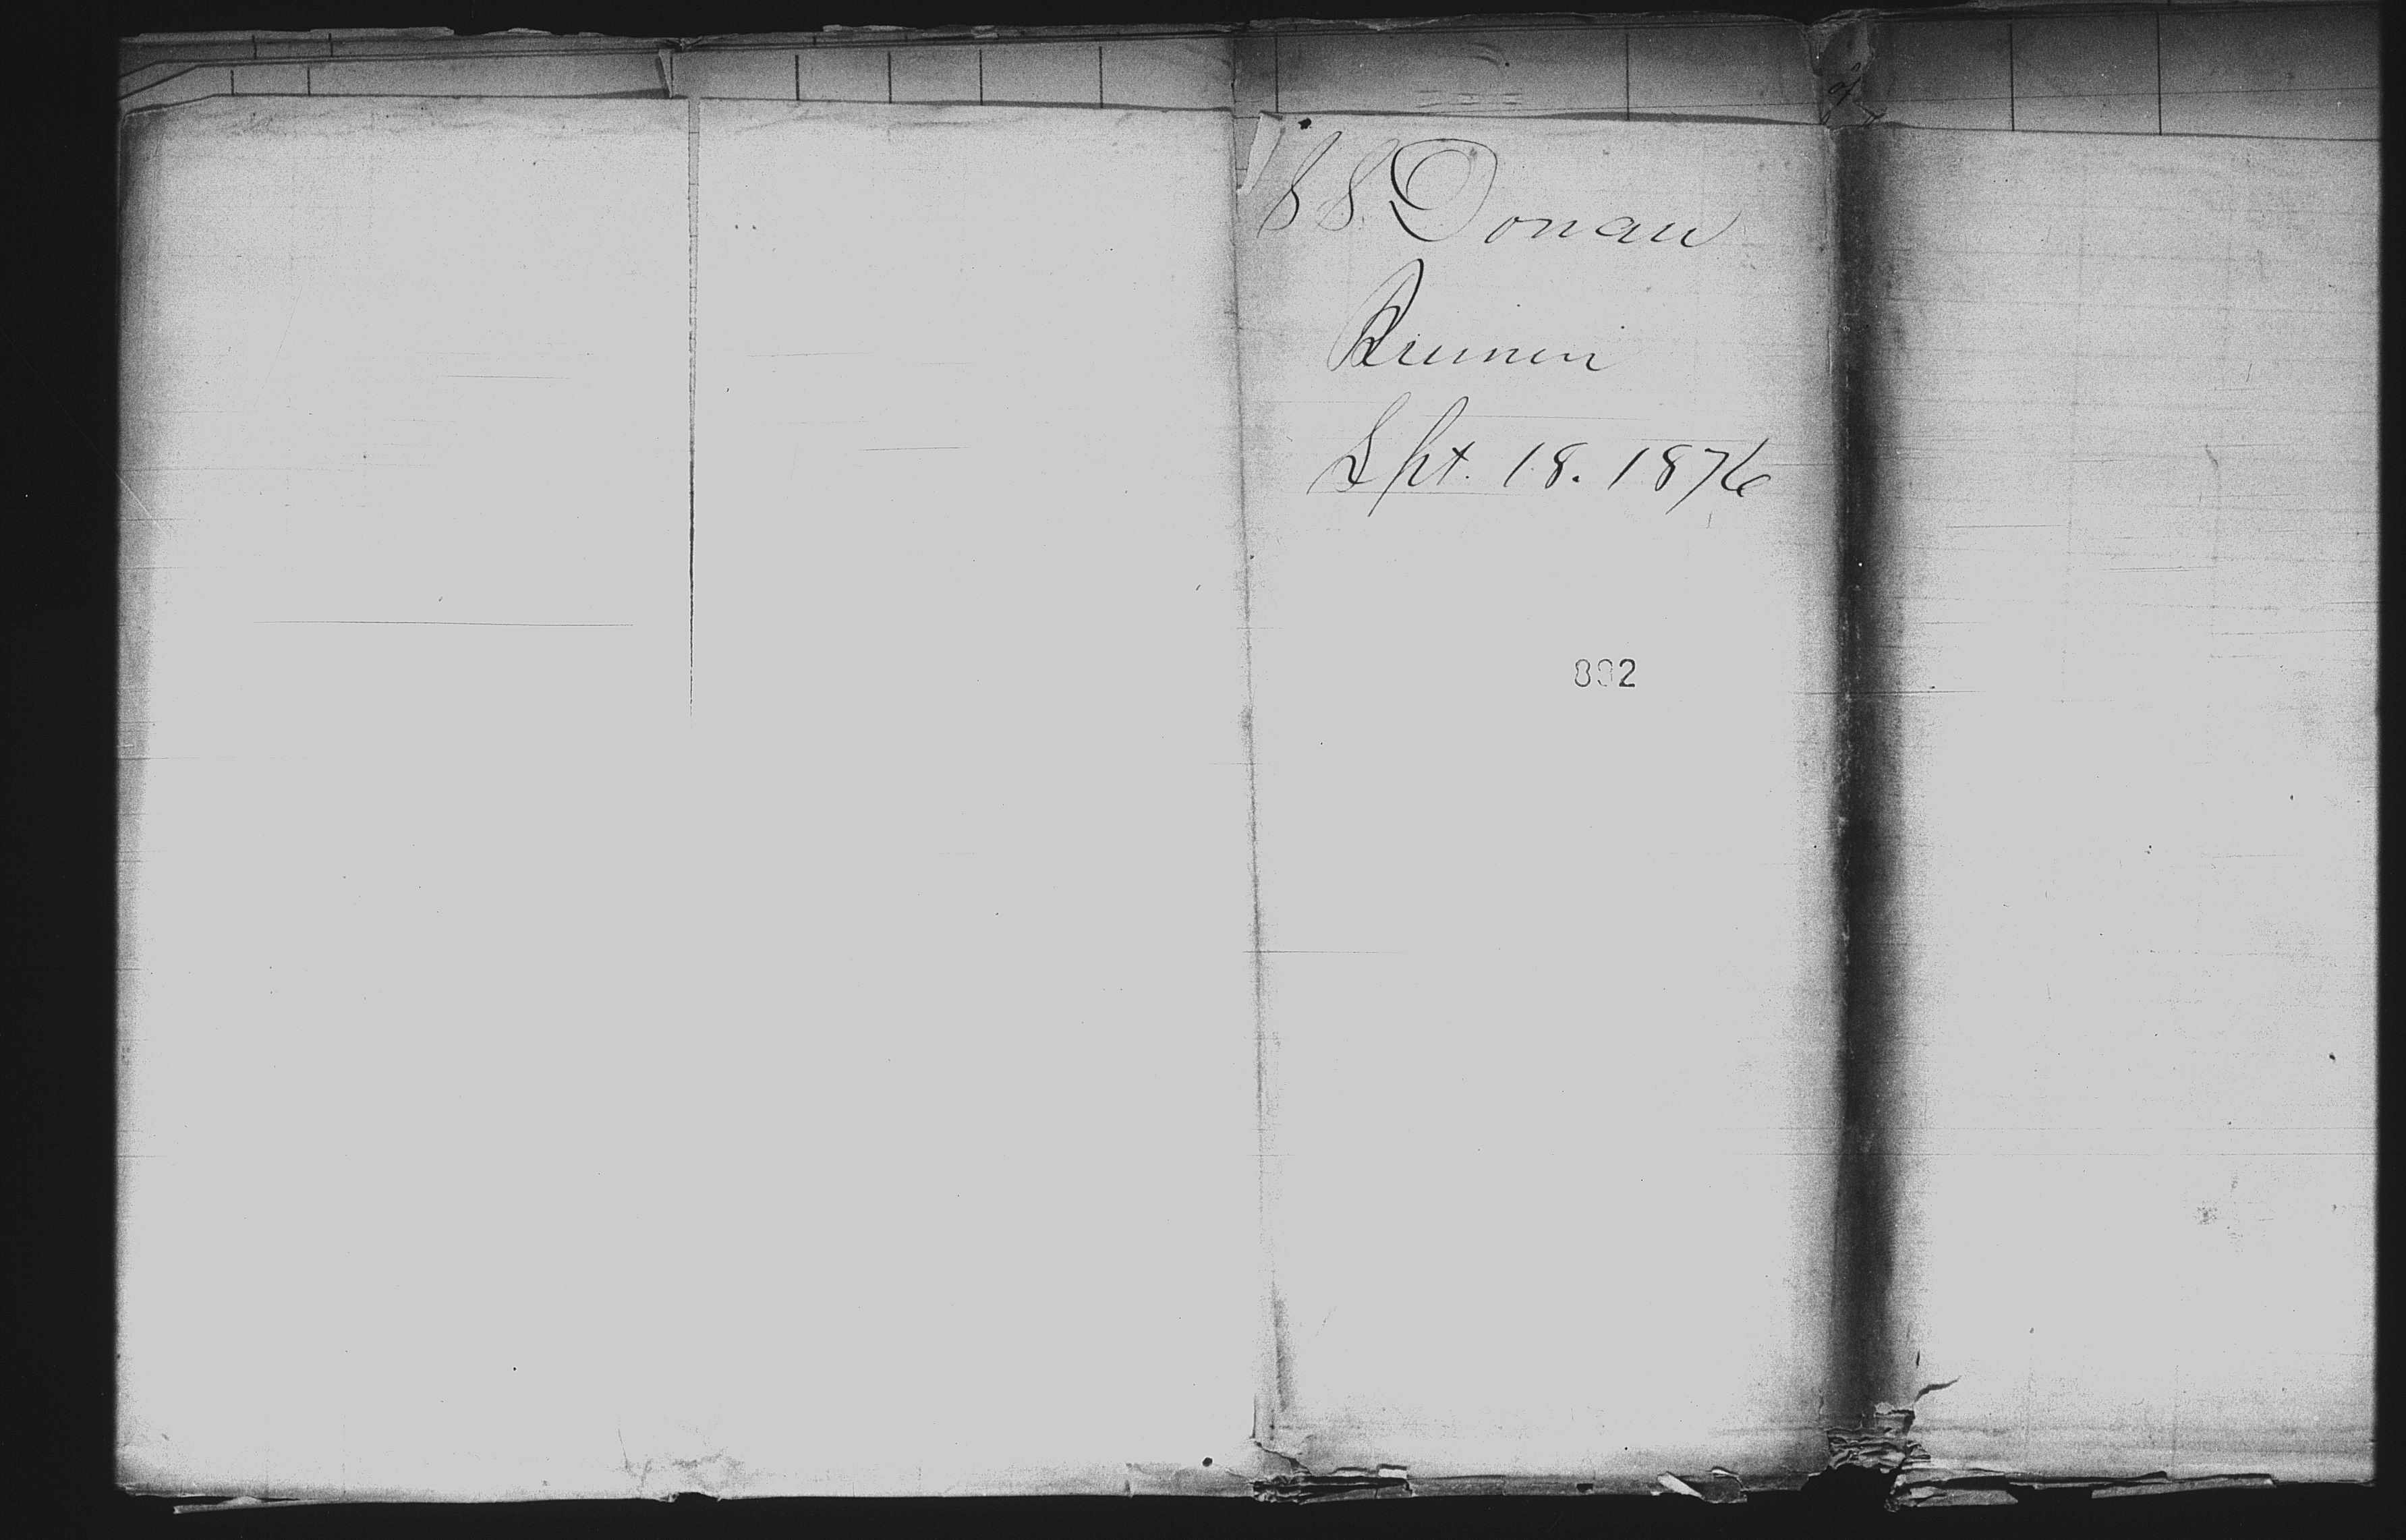 SS. Donau
Bremen
Spt. 18. 1876
892